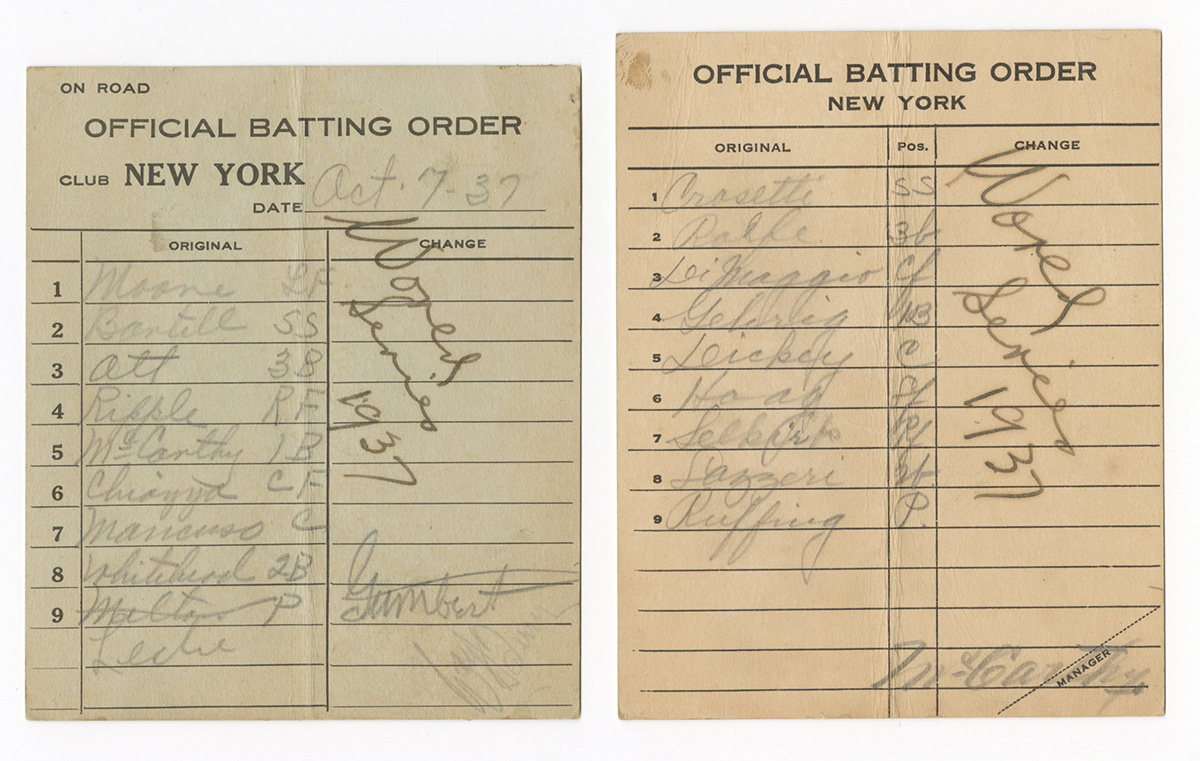 ON ROAD
OFFICIAL BATTING ORDER
CLUB NEW YORK
DATE Oct. 7-37
ORIGINAL CHANGE
World
Series
1937
1 Moore LF
2 Bartell SS
3 Ott 3B
4 Ripple RF
5 McCarthy 1B
6 Chiozza CF
7 Mancuso C
8 Whitehead 2B
9 Melton P Gumbert
Leslie
OFFICIAL BATTING ORDER
NEW YORK
ORIGINAL POS. CHANGE
World
Series
1937
1 Crosetti SS
2 Rolfe 3b
3 DiMaggio cf
4 Gehrig 1B
5 Dickey C
6 Hoag lf
7 Selkirk rf
8 Lazzeri 2b
9 Ruffing P.
McCarthy
MANAGER